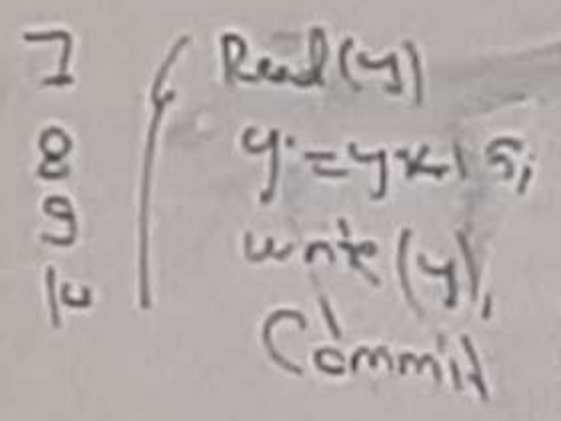 7 Read(y)
8 y:=y*1.5;
9 write(y);
10 Commit